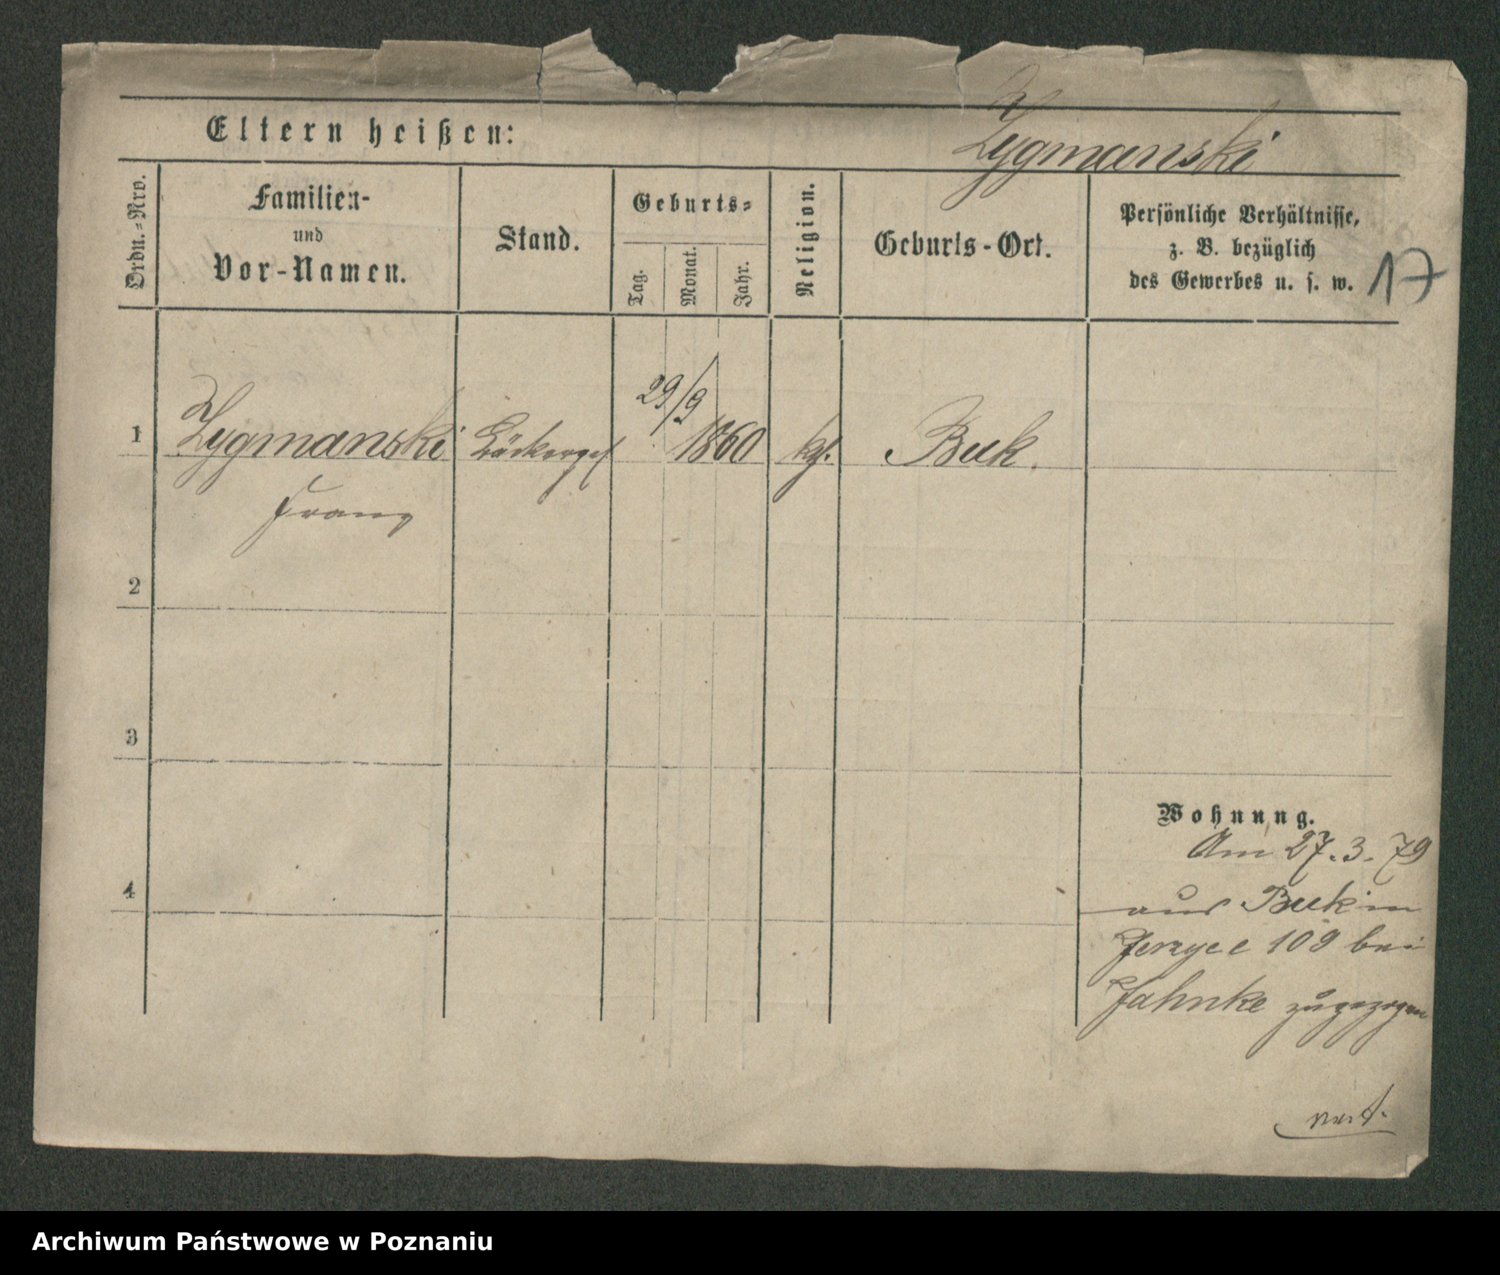 Eltern heißen:
Zygmanski
Ordn.-Nro.
Familien-
und
Vor-Namen.
Stand.
Geburts-
Tag.
Monat.
Jahr.
Religion.
Geburts-Ort.
Persönliche Verhältnisse,
z. B. bezüglich
des Gewerbes u. s. w.
17
1
Zygmanski
Franz
Bäckerges
29/9
1860
kth.
Buk.
2
3
4
Wohnung.
Am 27.3.79
aus Buk in
Jerzyce 109 bei
Jahnke zugezogen
Archiwum Państwowe w Poznaniu